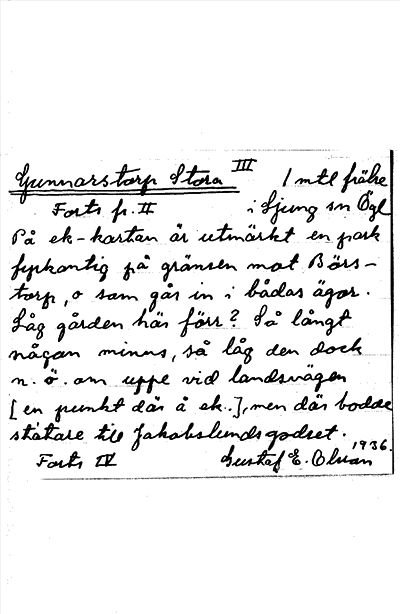 Gunnarstorp Stora III 1 mtl frälse
Forts fr. II i Ljung sn Ögl
På ek-kartan är utmärkt en park
fyrkantig på gränsen mot Börs-
torp, o som går in i bådas ägor.
Låg gården här förr? Så långt
någon minns, så låg den dock
n. ö. om uppe vid landsvägen
[en punkt där å ek.], men där bodde
statare till Jakobslundsgodset.
Forts IV Gustaf E. Olsson 1936.